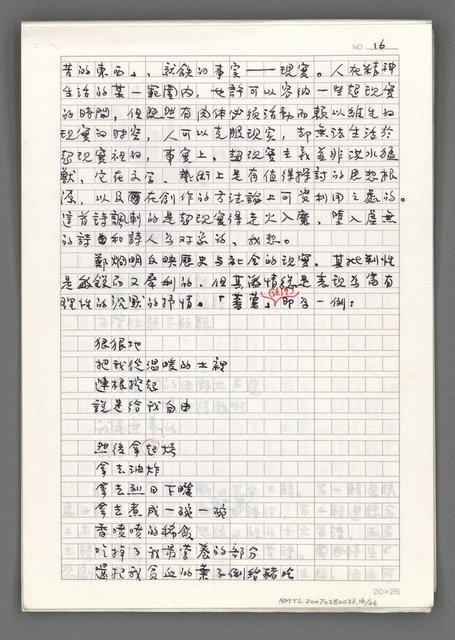 NO. 16
苦的東西」、就飲的事實——現實。人在精神
生活的某一範圍內，也許可以容納一些超現實
的時間，但既然有肉体必須活動而賴以維生的
現實的時空，人可以克服現實，却無法生活於
超現實裡的，事實上，超現實主義並非洪水猛
獸，它在文學、藝術上是有值得探討的思想根
源，以及在創作的方法論上可資利用之處的。
這首詩諷刺的是超現實得走火入魔，墮入虛無
的詩和詩人為對象的，我想。
鄭炯明反映歷史與社會的現實，其批判性
是敏銳而又犀利的，但其激情總是表現為富有
理性的沉默的抒情。「蕃薯」即為一例：
狠狠地
把我從溫暖的土裡
連根挖起
說是給我自由
然後拿起烤
拿去油炸
拿去烈日下曬
拿去煮成一碗一碗
香噴噴的稀飯
吃掉了我最營養的部分
還把我貧血的葉子倒給豬吃
20×25
NMTL20070280033,16/26